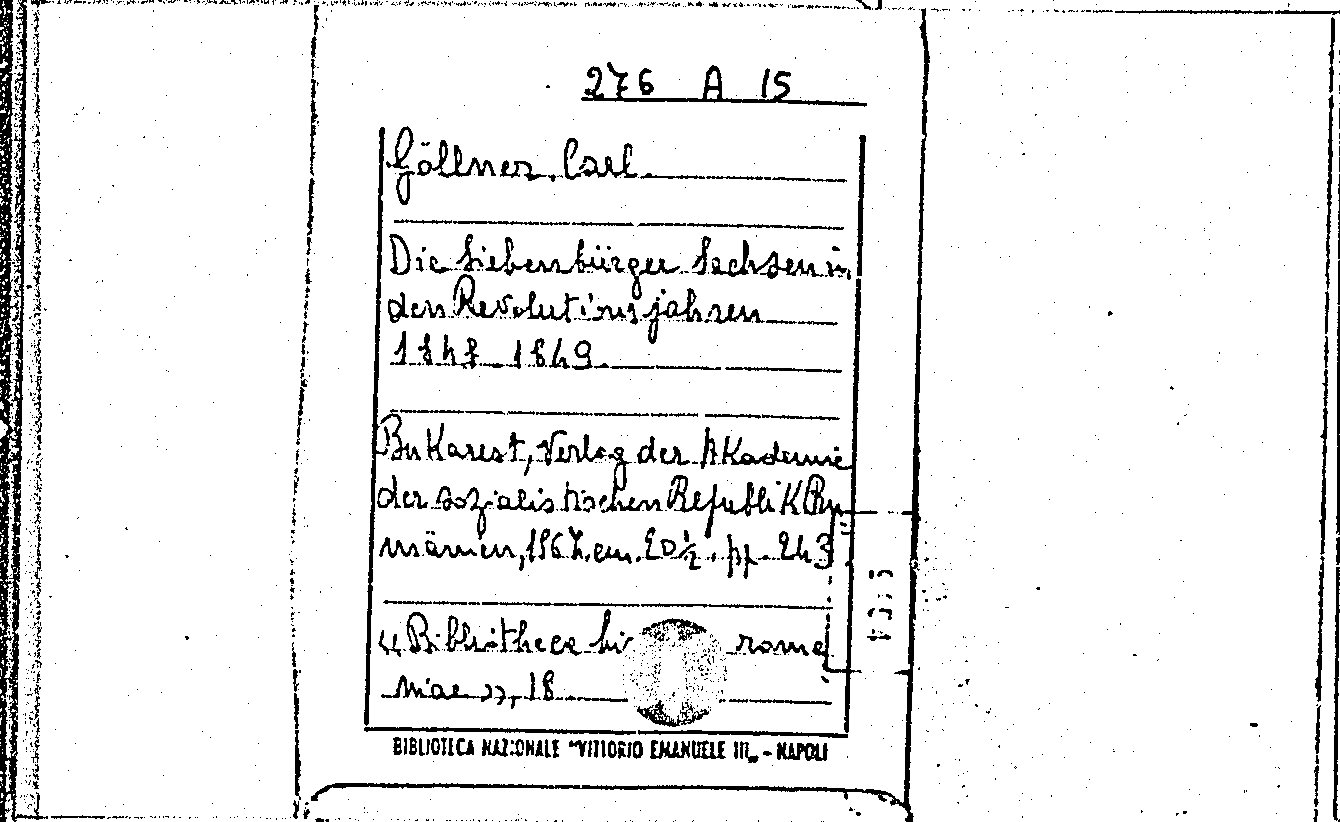 276 A 15
Göllner, Carl.
Die Siebenbürger Sachsen in
den Revolutionsjahren
1848-1849.
Bukarest, Verlag der Akademie
der sozialistischen Republik Ru-
mänien, 1967. cm. 20½. pp. 243
«Bibliotheca hi roma
niae», 18
BIBLIOTECA NAZIONALE "VITTORIO EMANUELE III„ - NAPOLI